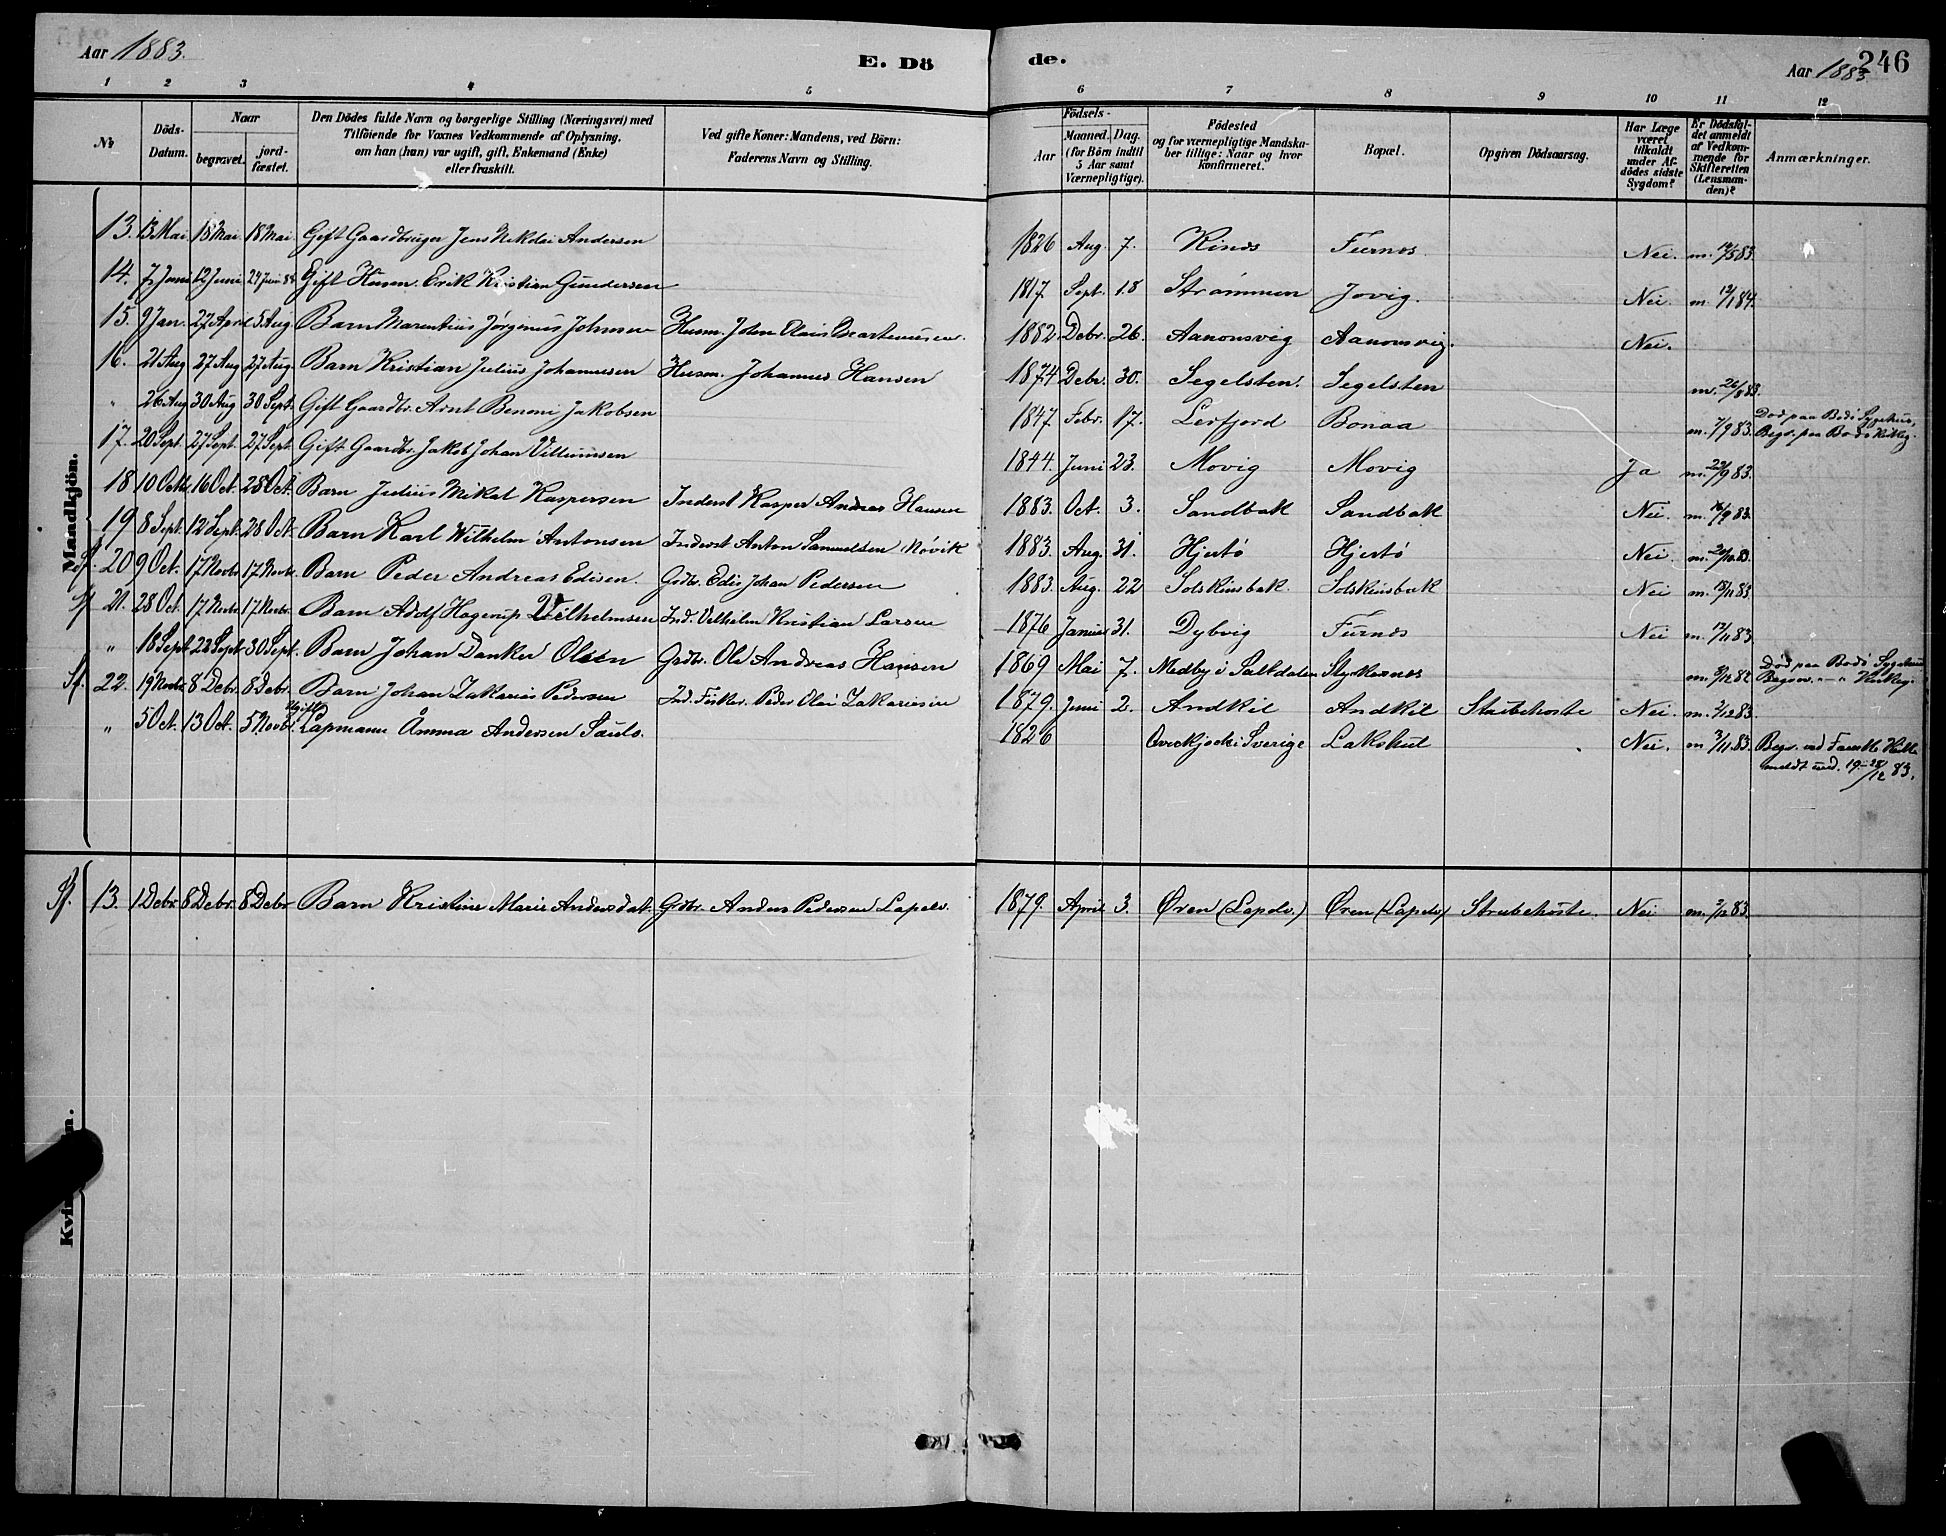 Aar 1883.
E. Dö
de.
Aar 1883
246
1 2 3 4 5 6 7 8 9 10 11 12
№
Döds-Datum.
Naar
begravet.
jord-fæstet.
Den Dödes fulde Navn og borgerlige Stilling (Næringsvei) med
Tilföiende for Voxnes Vedkommende af Oplysning,
om han (hun) var ugift, gift, Enkemand (Enke)
eller fraskilt.
Ved gifte Koner: Mandens, ved Börn:
Faderens Navn og Stilling.
Födsels-
Aar
Maaned. Dag.
(for Börn indtil
5 Aar samt
Værnepligtige).
Födested
og for værnepligtige Mandska-
ber tillige: Naar og hvor
konfirmeret.
Bopæl.
Opgiven Dödsaarsag.
Har Læge
været
tilkaldt
under Af-
dödes sidste
Sygdom?
Er Dödsfal-
det anmeldt
af Vedkom-
mende for
Skifteretten
(Lensman-
den)?
Anmærkninger.
Mandkjön.
13. 13 Mai 18 Mai 18 Mai Gift Gaardbruger Jens Nikolai Andersen 1826 Aug. 7. Furnes Nei. m. 14/5 83.
14. 7 Juni 12 Juni 24 Juni 83 Gift Husm. Erik Kristian Gundersen 1817 Sept. 18 Strømmen Jovig. Nei. m. 12/1 84.
15. 9 Jan. 27 April 5 Aug. Barn Marentius Jørginus Johnsen Husm. John Olais 1882 Debr. 26. Aanonsvig Aanonsvig. Nei.
16. 21 Aug 27 Aug 27 Aug. Barn Kristian Julius Johannesen Husm. Johannes Hansen 1874 Debr. 30. Segelsten. Segelsten m. 26/8 83.
" 26 Aug 30 Aug 30 Sept. Gift Gaardbr. Arnt Benoni Jakobsen 1847 Febr. 17. Lerfjord Bonaa m. 7/9 83. Død paa Bodö Sygehus, Begr. paa Bodö Kirkeg.
17. 20 Sept. 27 Sept. 27 Sept. Gift Gaardbr. Jakob Johan Villumsen 1844. Juni 23. Movig Movig Ja m. 22/9 83.
18 10 Octb. 16 Oct. 28 Oct. Barn Julius Mikal Kaspersen Inderst Kasper Andreas Hansen 1883. Oct. 3. Sandbak Sandbak Nei. m. 83.
19 8 Sept. 12 Sept. 28 Oct. Barn Karl Wilhelm Antonsen Inderst Anton Samuelsen Røvik 1883. Aug. 31. Hjertö Hjertö Nei. m. 83.
Sf. 20 9 Oct. 17 Novbr. 17 Novbr. Barn Peder Andreas Edisen. Grdbr. Edis Johan Pedersen 1883. Aug. 22 Solskinsbak. Solskinsbak Nei m. 83.
Sf. 21. 28 Oct. 17 Novbr. 17 Novbr. Barn Adolf Hagerup Vilhelmsen Ind. Vilhelm Kristian Larsen 1876 Januar 31. Dybvig Furnes Nei m. 12/11 83.
" 18 Sept 22 Sept 30 Sept. Barn Johan Danker Olsen Grdbr. Ole Andreas Hansen 1869 Mai 7. Medby i Saltdalen Død paa Bodö Sygehus Begrav. " " Kirkeg.
Sf. 22. 19 Novbr. 8 Debr. 8 Debr. Barn Johan Zakarias Pedersen Ind. Fisker. Peder Olai Zakariasen 1879. Juni 2. Andkil Andkil Strubehoste Nei. m. 2/12 83.
" 5 Oct. 13 Oct. 5 Novbr. Ugift Lapmann Amma Andersen Sauls. 1826 i Sverige Lakshul Nei. m. 3/11 83. Begr. ved
meldt und. 19-28/12 83.
Sf. 13. 1 Debr 8 Debr. 8 Debr Barn Kristine Marie Andersdat. Grdbr. Anders Pedersen Lapelv. 1879. April 3. Øren (Lapelv.) Øren (Lapelv) Strubehoste. Nei m. 2/12 83.